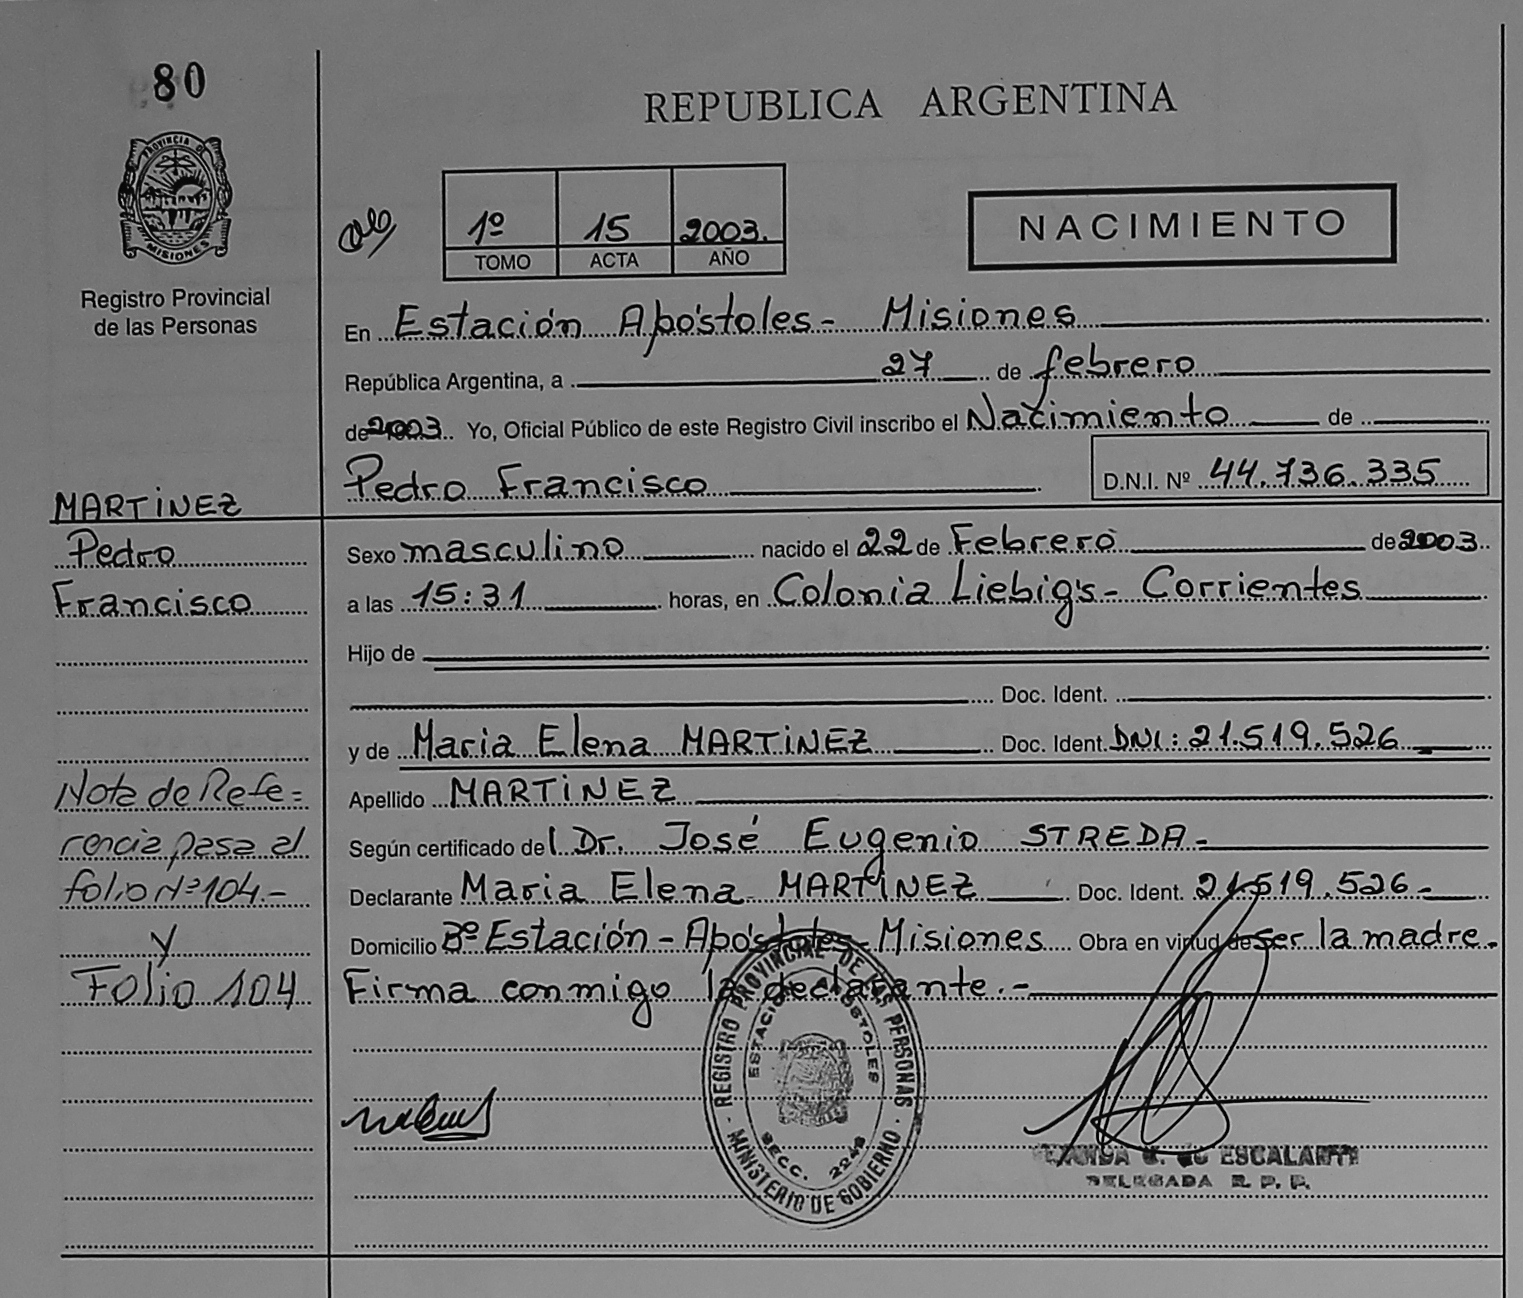 80
PROVINCIA DE
MISIONES
Registro Provincial
de las Personas
REPUBLICA ARGENTINA
1º 15 2003.
TOMO ACTA AÑO
NACIMIENTO
En Estación Apóstoles - Misiones
República Argentina, a 27 de febrero
de 2003 Yo, Oficial Público de este Registro Civil inscribo el Nacimiento de
Pedro Francisco D.N.I. Nº 44.736.335
MARTINEZ
Pedro
Francisco
Sexo masculino nacido el 22 de Febrero de 2003
a las 15:31 horas, en Colonia Liebig's - Corrientes
Hijo de
Doc. Ident.
y de Maria Elena MARTINEZ Doc. Ident. DNI: 21.519.526
Apellido MARTINEZ
Según certificado del Dr. José Eugenio STREDA -
Declarante Maria Elena MARTINEZ Doc. Ident. 21.519.526 -
Domicilio Bº Estación - Apóstoles - Misiones Obra en virtud de ser la madre.
Firma conmigo la declarante. -
Nota de Refe=
rencia pasa al
folio Nº 104.-
y
Folio 104
REGISTRO PROVINCIAL DE LAS PERSONAS
ESTACION APOSTOLES
SECC. 2248
MINISTERIO DE GOBIERNO
DE ESCALANTE
DELEGADA R. P. P.